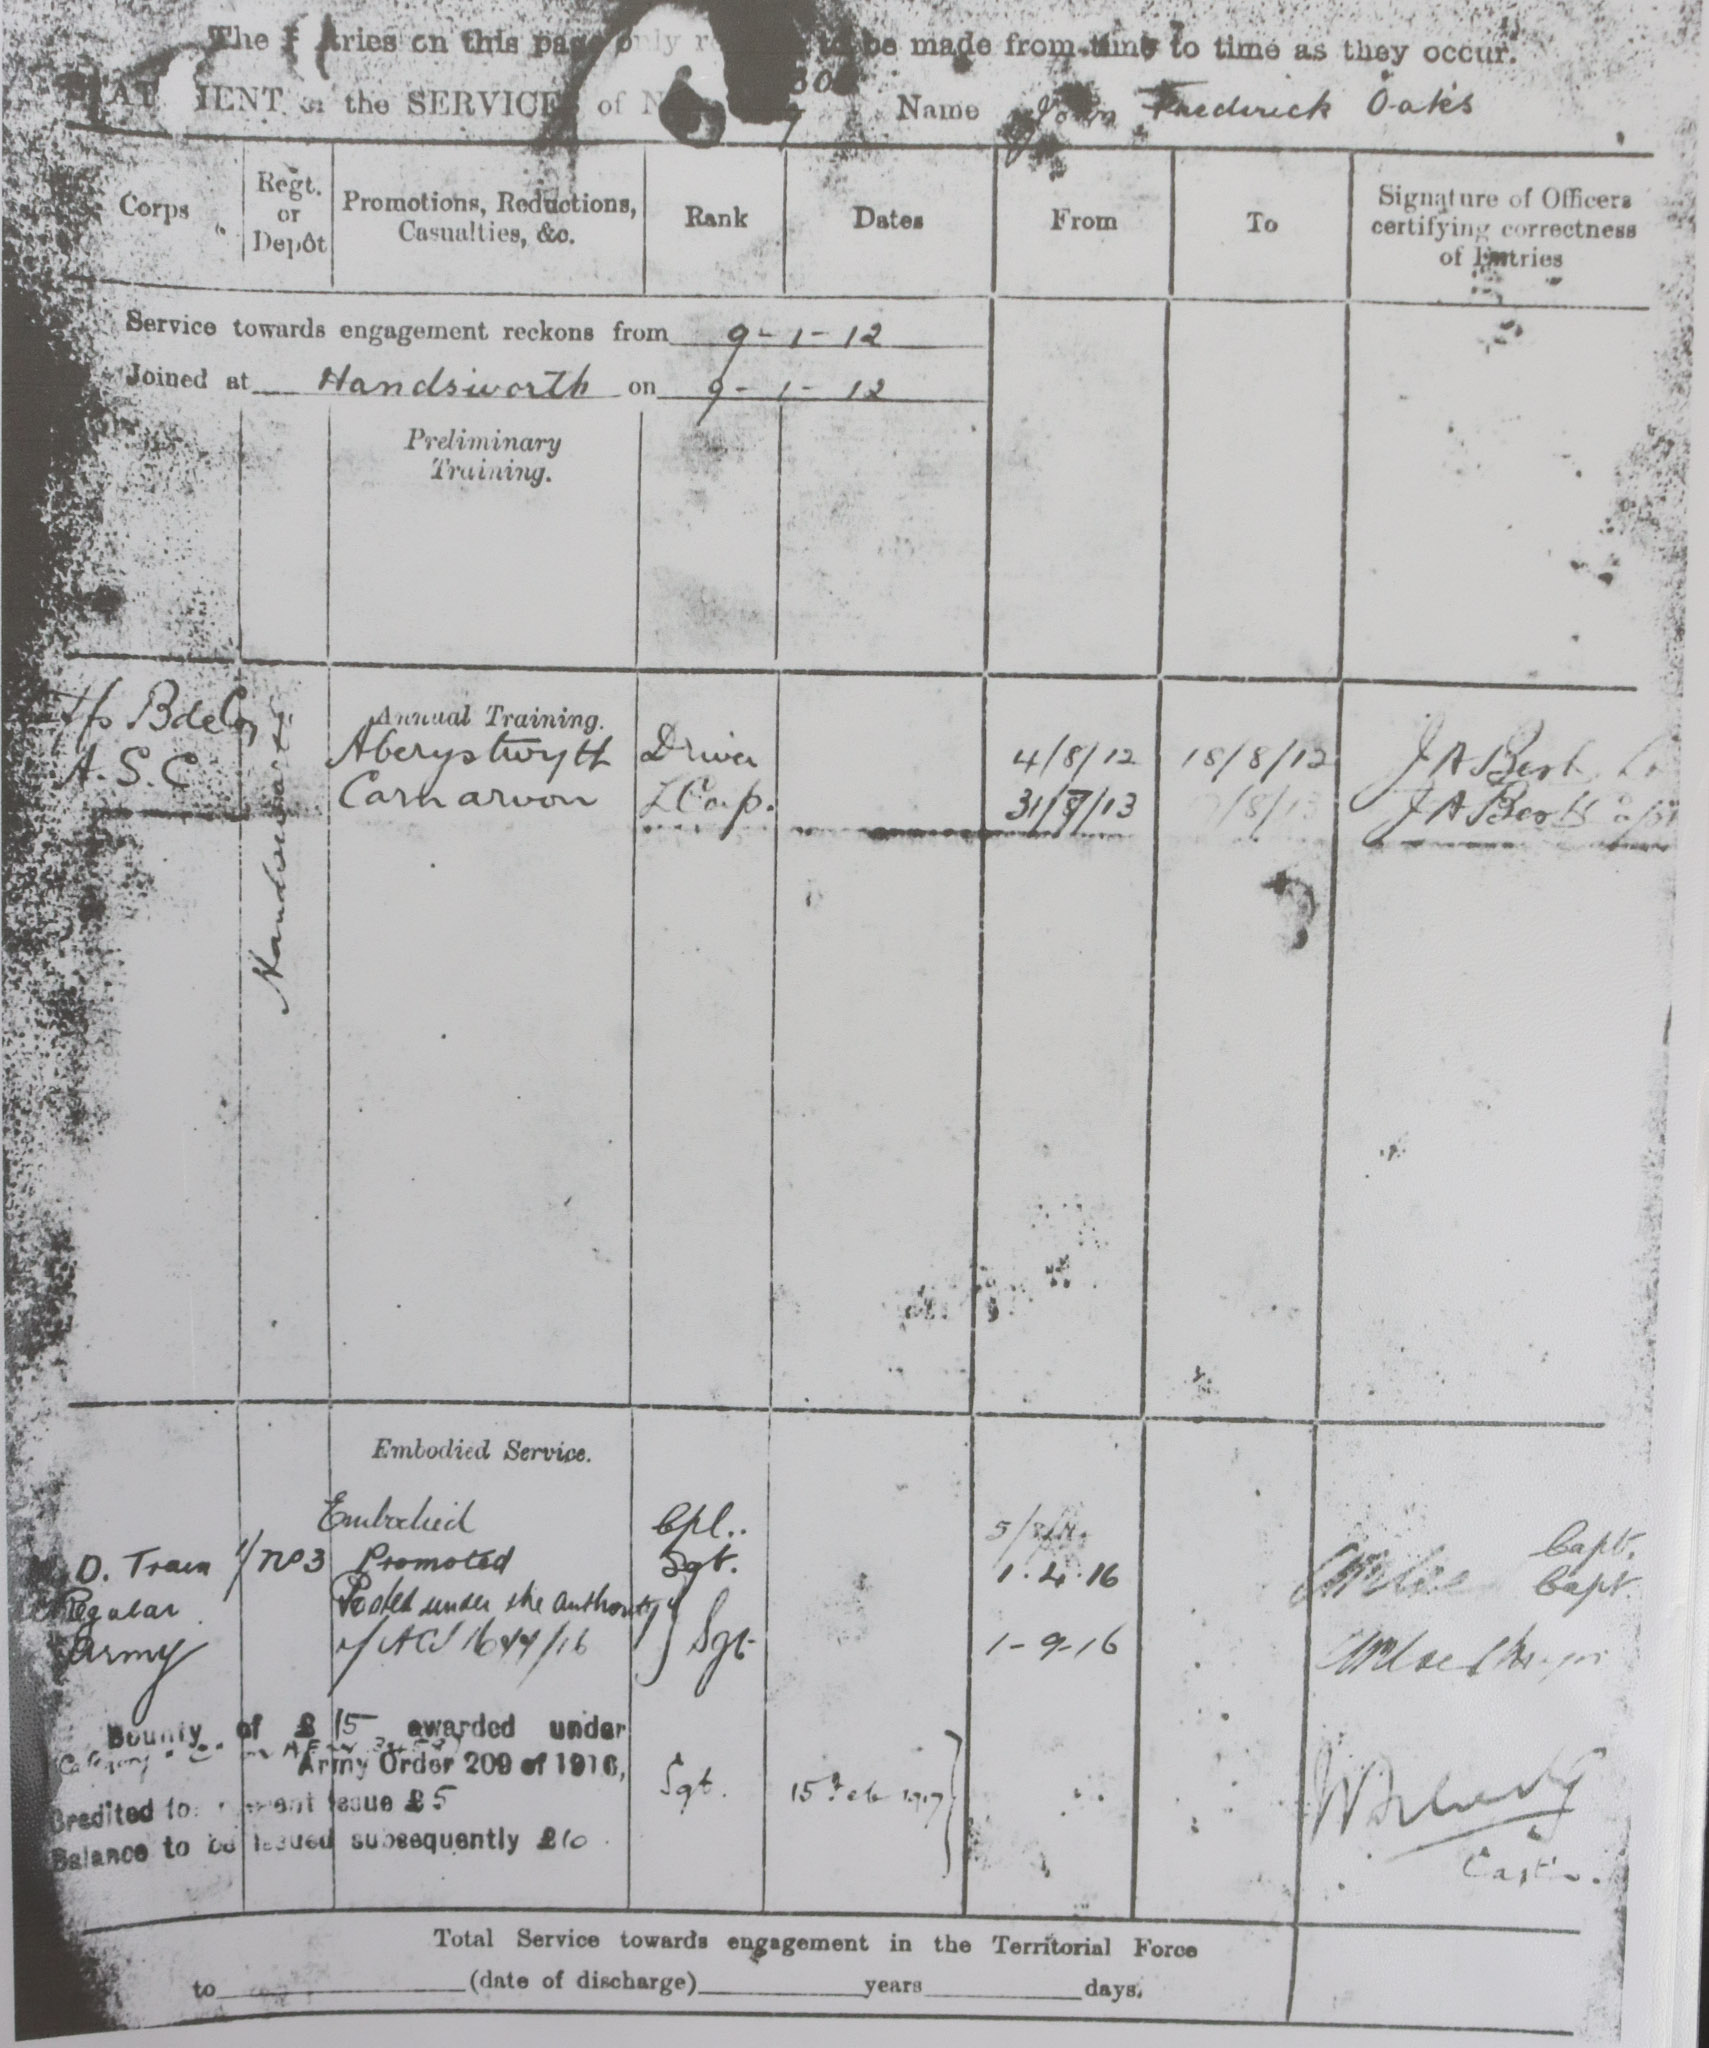 The tries on this page only to be made from time to time as they occur.
the SERVICE of Name John Frederick Oaks
Corps
Regt. or Depôt
Promotions, Reductions, Casualties, &c.
Rank
Dates
From
To
Signature of Officers certifying correctness of Entries
Service towards engagement reckons from 9-1-12
Joined at Handsworth on 9-1-12
Preliminary
Training.
Annual Training.
Bde Aberystwyth Driver 4/8/12 18/8/12 J A
A.S.C Carnarvon LCorp. 31/ /13 /8/13 J A
Handsworth
Embodied Service.
Embodied Cpl.. 5/ Capt.
D. Train 1/ No 3 Promoted Sgt. 1.4.16 Capt
Regular Posted under the authority
Army of ACI 16 /16 Sgt 1-9-16
Bounty of £15 awarded under
Army Order 209 of 1916,
Credited for present issue £5 Sgt. 15 Feb 1917
Balance to be issued subsequently £10
Capt.
Total Service towards engagement in the Territorial Force
to (date of discharge) years days.